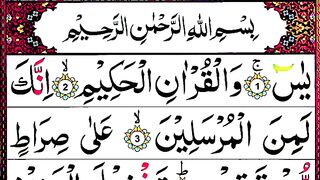 بِسْمِ اللهِ الرَّحْمٰنِ الرَّحِيْمِ
يٰسٓ ۚ ﴿1﴾ وَالْقُرْاٰنِ الْحَكِيْمِ ۙ ﴿2﴾ اِنَّكَ
لَمِنَ الْمُرْسَلِيْنَ ۙ ﴿3﴾ عَلٰى صِرَاطٍ